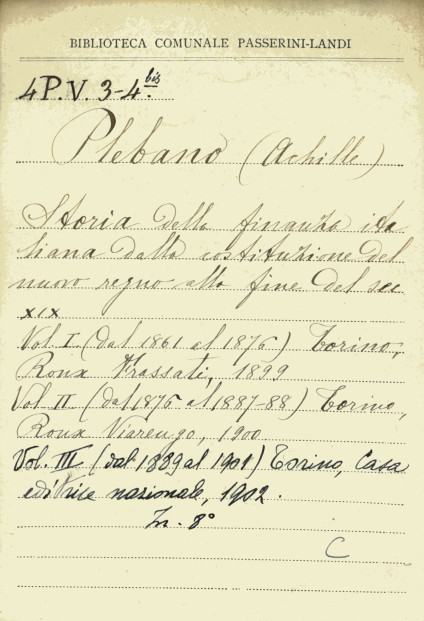 BIBLIOTECA COMUNALE PASSERINI-LANDI
4 P. V. 3-4 bis.
Plebano (Achille)
Storia della finanza ita
liana dalla costituzione del
nuovo regno alla fine del sec
XIX
Vol I (dal 1861 al 1876) Torino,
Roux Frassati, 1899
Vol II (dal 1876 al 1887-88) Torino,
Roux Viarengo, 1900
Vol. III (dal 1889 al 1901) Torino, Casa
editrice nazionale, 1902.
In. 8°
C